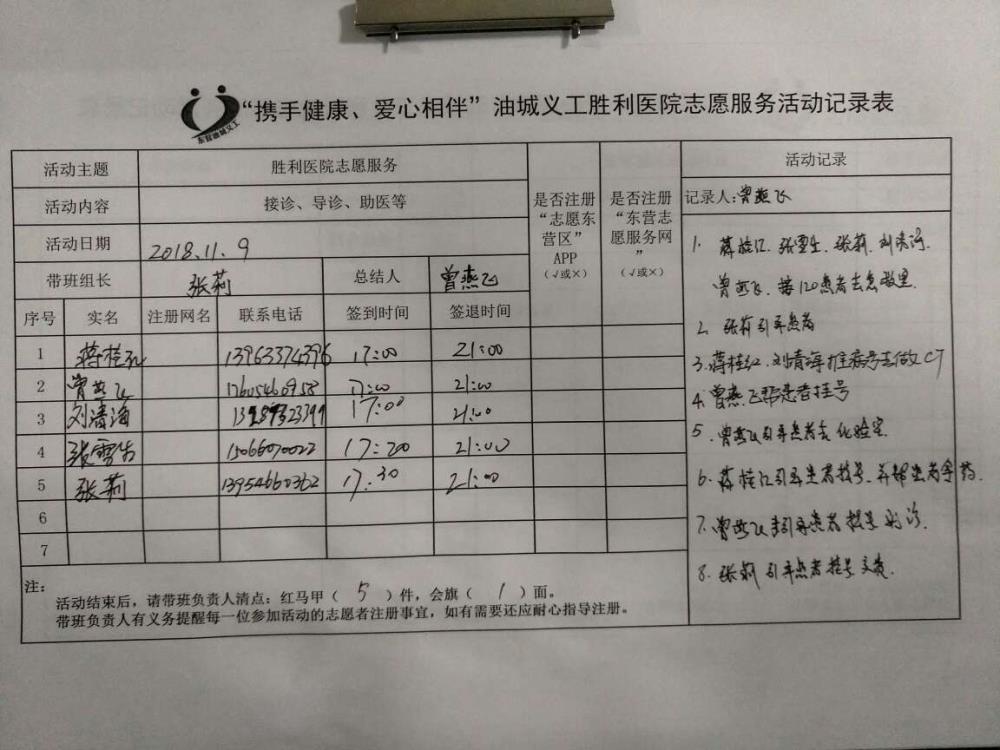 “携手健康、爱心相伴”油城义工胜利医院志愿服务活动记录表
东营油城义工
活动主题 胜利医院志愿服务
活动内容 接诊、导诊、助医等
活动日期 2018.11.9
带班组长 张莉 总结人 曾燕飞
序号 实名 注册网名 联系电话 签到时间 签退时间
是否注册
“志愿东
营区”
APP
(√或×)
是否注册
“东营志
愿服务网
”
(√或×)
1 蒋桂江 13963374396 17:00 21:00
2 曾燕飞 17605460958 17:00 21:00
3 刘清海 17:00 21:00
4 张雪生 15066070022 17:20 21:00
5 张莉 13954660362 17:30 21:00
6
7
注:
活动结束后，请带班负责人清点：红马甲（ 5 ）件，会旗（ 1 ）面。
带班负责人有义务提醒每一位参加活动的志愿者注册事宜，如有需要还应耐心指导注册。
活动记录
记录人:曾燕飞
1. 蒋桂江、张雪生、张莉、刘清海、
曾燕飞、接120患者去急救室.
2. 张莉引导患者
3. 蒋桂江、刘清海推病号去做CT
4. 曾燕飞帮患者挂号
5. 曾燕飞引导患者去化验室
6. 蒋桂江引导患者挂号、并帮患者拿药.
7. 曾燕飞引导患者挂号 就诊.
8. 张莉引导患者挂号交费.